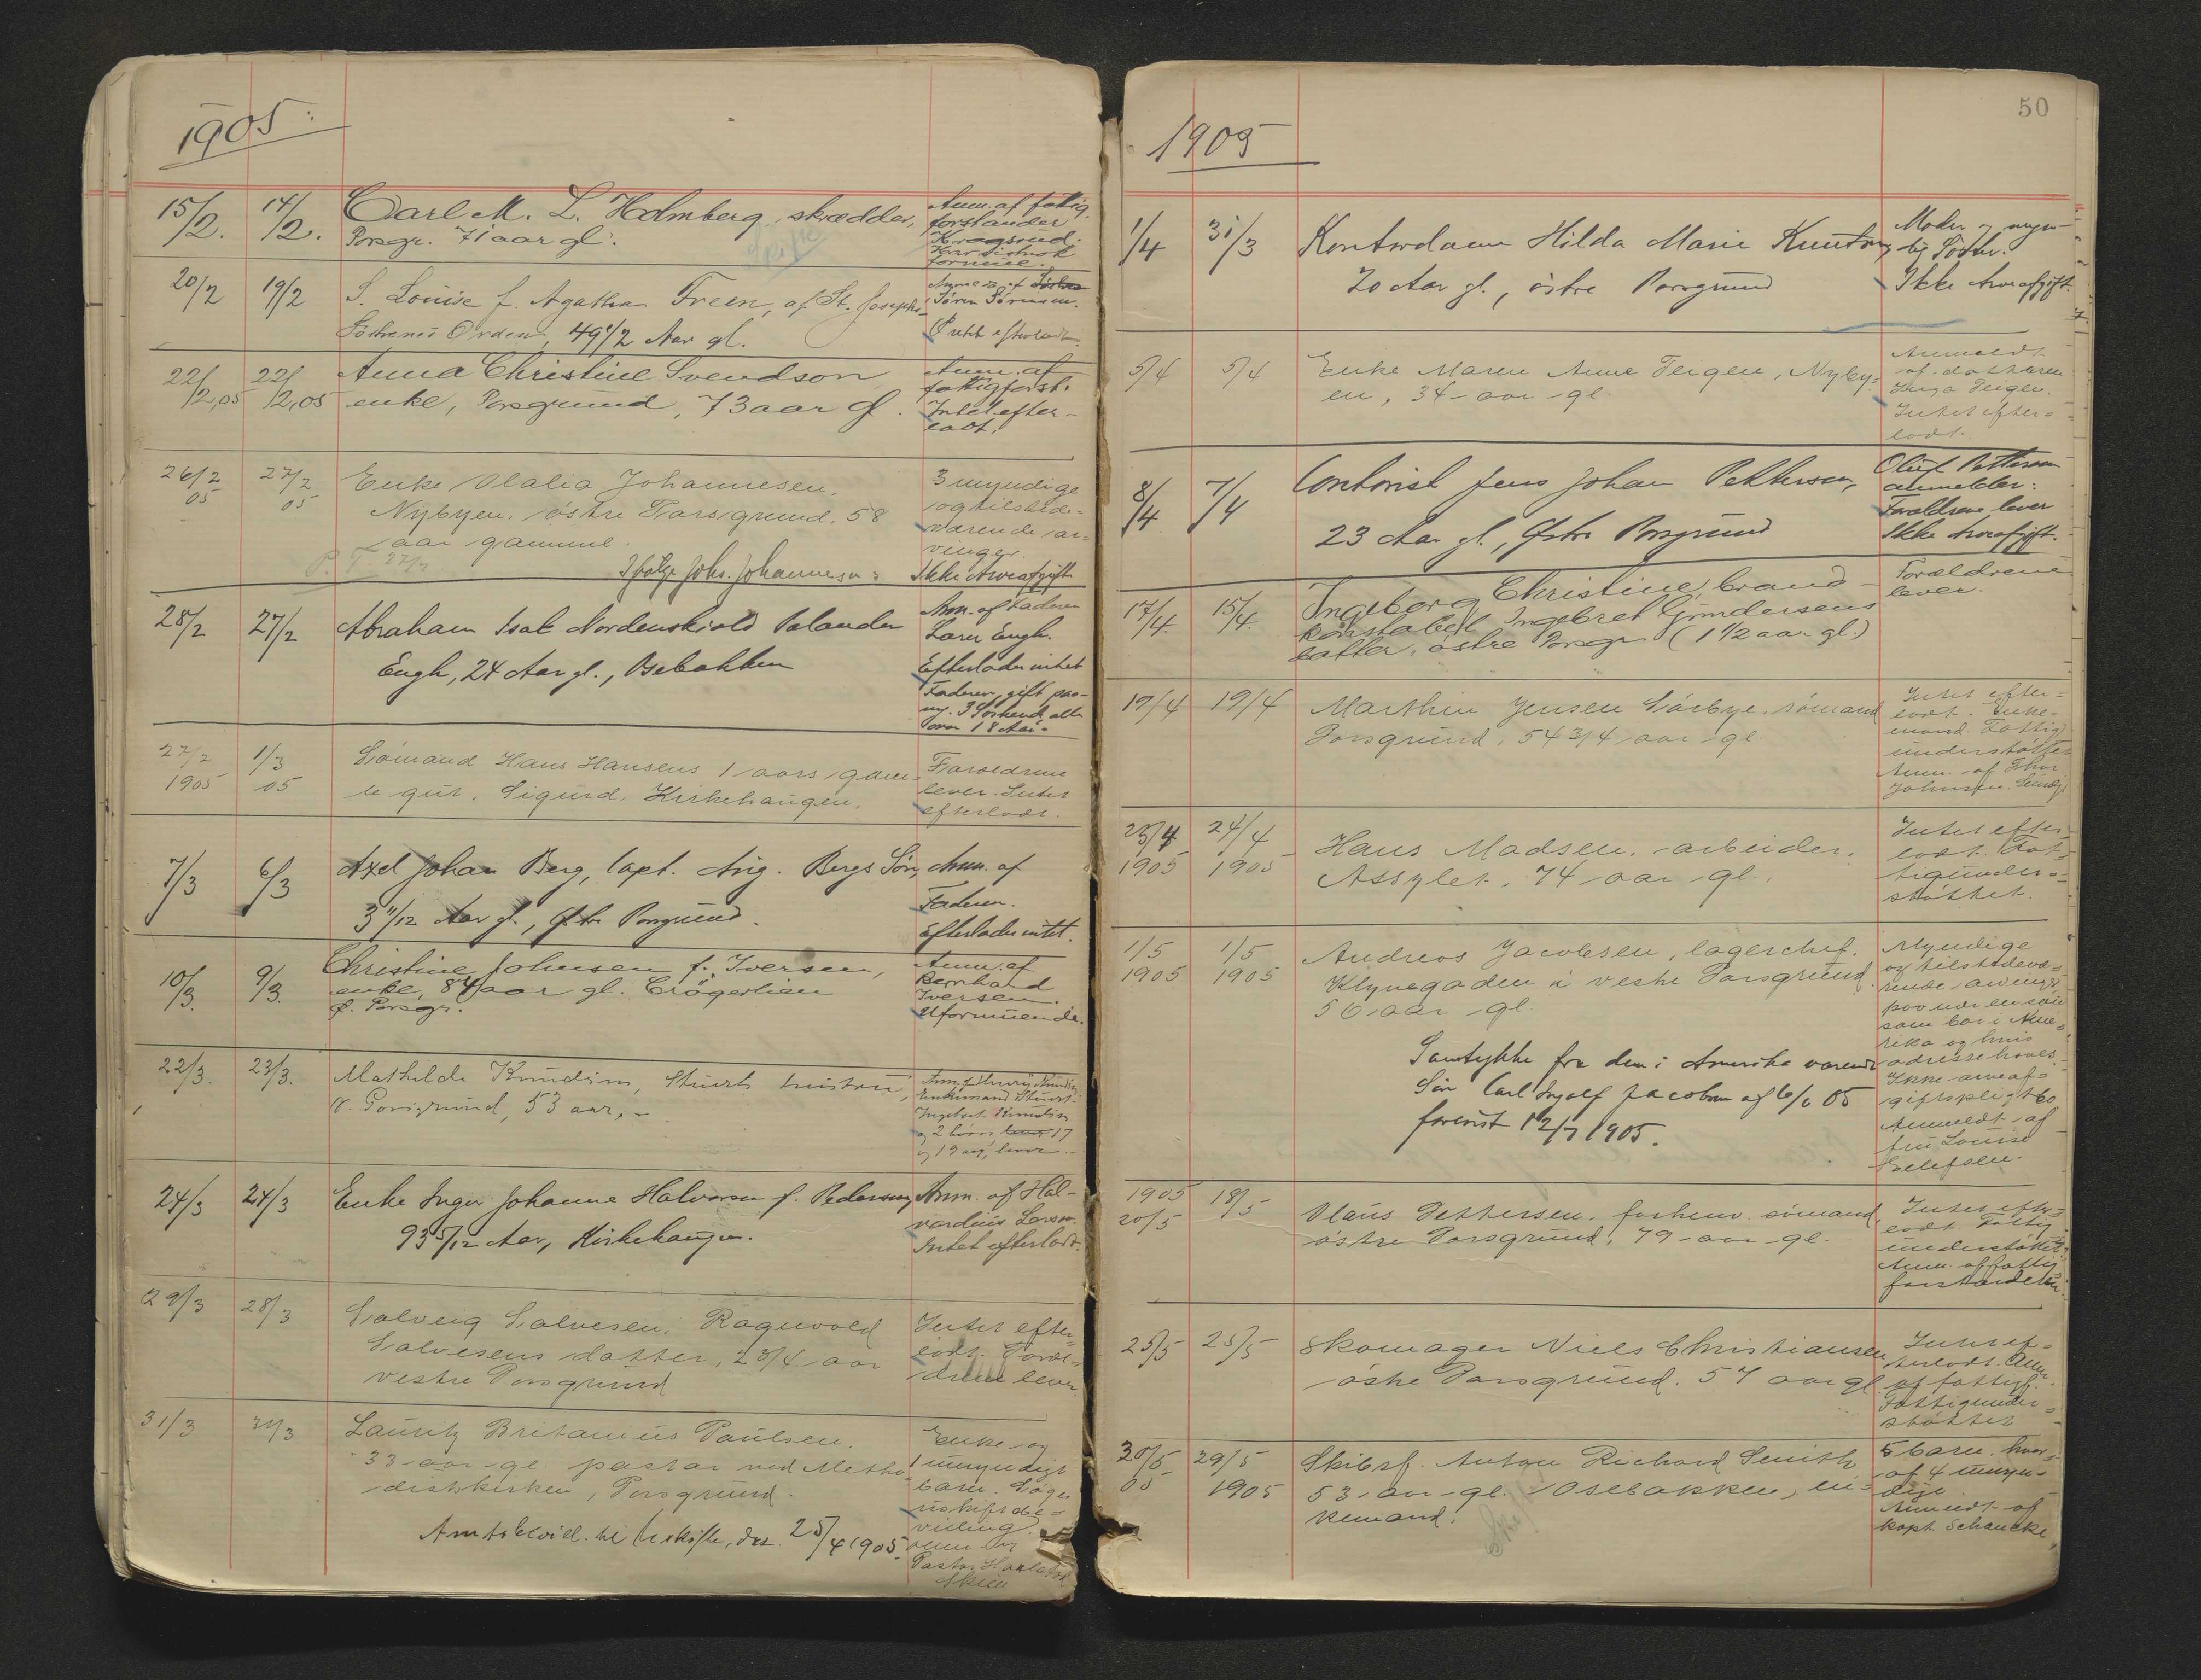 1905:
15/2. 14/2. Carl M. L. Holmberg, skrædder, Anm. af fattig-
Porsgr. 71 aar gl. forstander
Skifte Kragsrud.
Har
formue.
20/2 19/2 S. Louise f. Agatha Freen, af St. Josephs- af
Søstrenes Orden, 49 1/2 Aar gl. Søren Sørensen.
efterladt.
22/2,05 22/2,05 Anna Christine Svendson Anm. af
enke, Porsgrund, 73 aar gl. fattigforst.
Intet efter-
ladt.
26/2 05 27/2 05 Enke Olalia Johannesen, 3 myndige
Nybyen, østre Porsgrund, 58 og tilstede-
aar gammel. værende ar-
vinger.
Ifølge Johs. Johannesen Ikke Arveafgift
28/2 27/2 Abraham Isak Nordenskiold Palander Anm. af Faderen
Engh, 24 Aar gl., Osebakken Lars Engh.
Efterlader intet
Faderen, gift paa-
ny. 3 Søskende, alle
over 18 Aar.
27/2 1905 1/3 05 Sømand Hans Hansens 1 aars gam- Forældrene
le gut, Sigurd, Kirkehaugen. lever. Intet
efterladt.
7/3 6/3 Axel Johan Berg, Capt. Aug. Bergs Søn, Anm. af
3 11/12 Aar gl., Østre Porsgrund. Faderen.
Efterlader intet.
10/3. 9/3. Christine Johnsen f. Iversen, Anm. af
enke, 84 aar gl. Crøgerlien Bernhard
Ø. Porsgr. Iversen.
Uformuende.
22/3. 23/3. Mathilde Knudsen, Stuerts hustru,
V. Porsgrund, 53 aar, - Enkemand Stuert
Ingebret Knudsen
og 2 børn 17
og 19 aar, lever
24/3 24/3 Enke Inger Johanne Halvorsen f. Pedersen, Anm. af Hal-
93 5/12 Aar, Kirkehaugen. vardius Larsen.
Intet efterladt.
29/3 28/3 Solveig Salvesen, Ragnvald Intet efter-
Salvesens datter, 2 3/4 aar ladt. Foræl-
vestre Porsgrund drene lever
31/3 31/3 Lauritz Britanius Paulsen, Enke og
33 aar gl. pastor ved Metho- 1 umyndigt
distkirken, Porsgrund. barn. Søger
uskiftebe-
villing.
Amtsbevill. til Uskifte, dat. 25/4 1905. Anm. av
Pastor
Skien
50
1905
1/4 31/3 Kontordame Hilda Marie Knutsen, Moder og myn-
20 Aar gl., østre Porsgrund dig Søster.
Ikke Arveafgift.
5/4 5/4 Enke Maren Anne Teigen, Nyby- Anmeldt
en, 34 aar gl. af datteren
Inga Teigen.
Intet efter-
ladt.
8/4 7/4 Contorist Jens Johan Pettersen, Oluf Pettersen
23 Aar gl., Østre Porsgrund anmelder.
Forældrene lever
Ikke Arveafgift.
17/4. 15/4. Ingeborg Christine, brand- Forældrene
konstabel Ingebret Gundersens lever.
datter, østre Porsgr. (1 1/2 aar gl.)
19/4 19/4 Marthin Jensen Sørbye, sømand Intet efter-
Porsgrund, 54 3/4 aar gl. ladt. Enke-
mand. Fattig-
understøttet
Anm. af Thor
Johnsen
23/4 1905 24/4 1905 Hans Madsen, arbeider. Intet efter-
Assylet, 74 aar gl. ladt. Fat-
tigunder-
støttet.
1/5 1905 1/5 1905 Andreas Jacobsen, lagerchef. Myndige
Klynegaden i vestre Porsgrund og tilstedevæ-
56 aar gl. rende arvinger
paa nær en søn
som bor i Ame-
rika og hvis
Samtykke fra den i Amerika værende adresse haves.
Søn Carl Ingolf Jacobsen af 6/6 05 Ikke arveaf-
forevist 12/7 1905. giftspligt bo
Anmeldt af
fru Louise
20/5 1905 18/5 Olaus Pettersen, forhenv. sømand, Intet efter-
østre Porsgrund, 79 aar gl. ladt. Fattig
understøttet
Anm. af fattig
forstanderen
25/5 25/5 Skomager Niels Christiansen Intet ef-
østre Porsgrund, 57 aar gl. terladt. Anm.
af fattigf.
Fattigunder-
støttet
30/5 05 29/5 1905 Skibsf. Anton Richard Smith 5 barn, hvor-
53 aar gl. Osebakken, en- af 4 umyn-
kemand. dige
Skifte Anmeldt af
kapt. Schancke